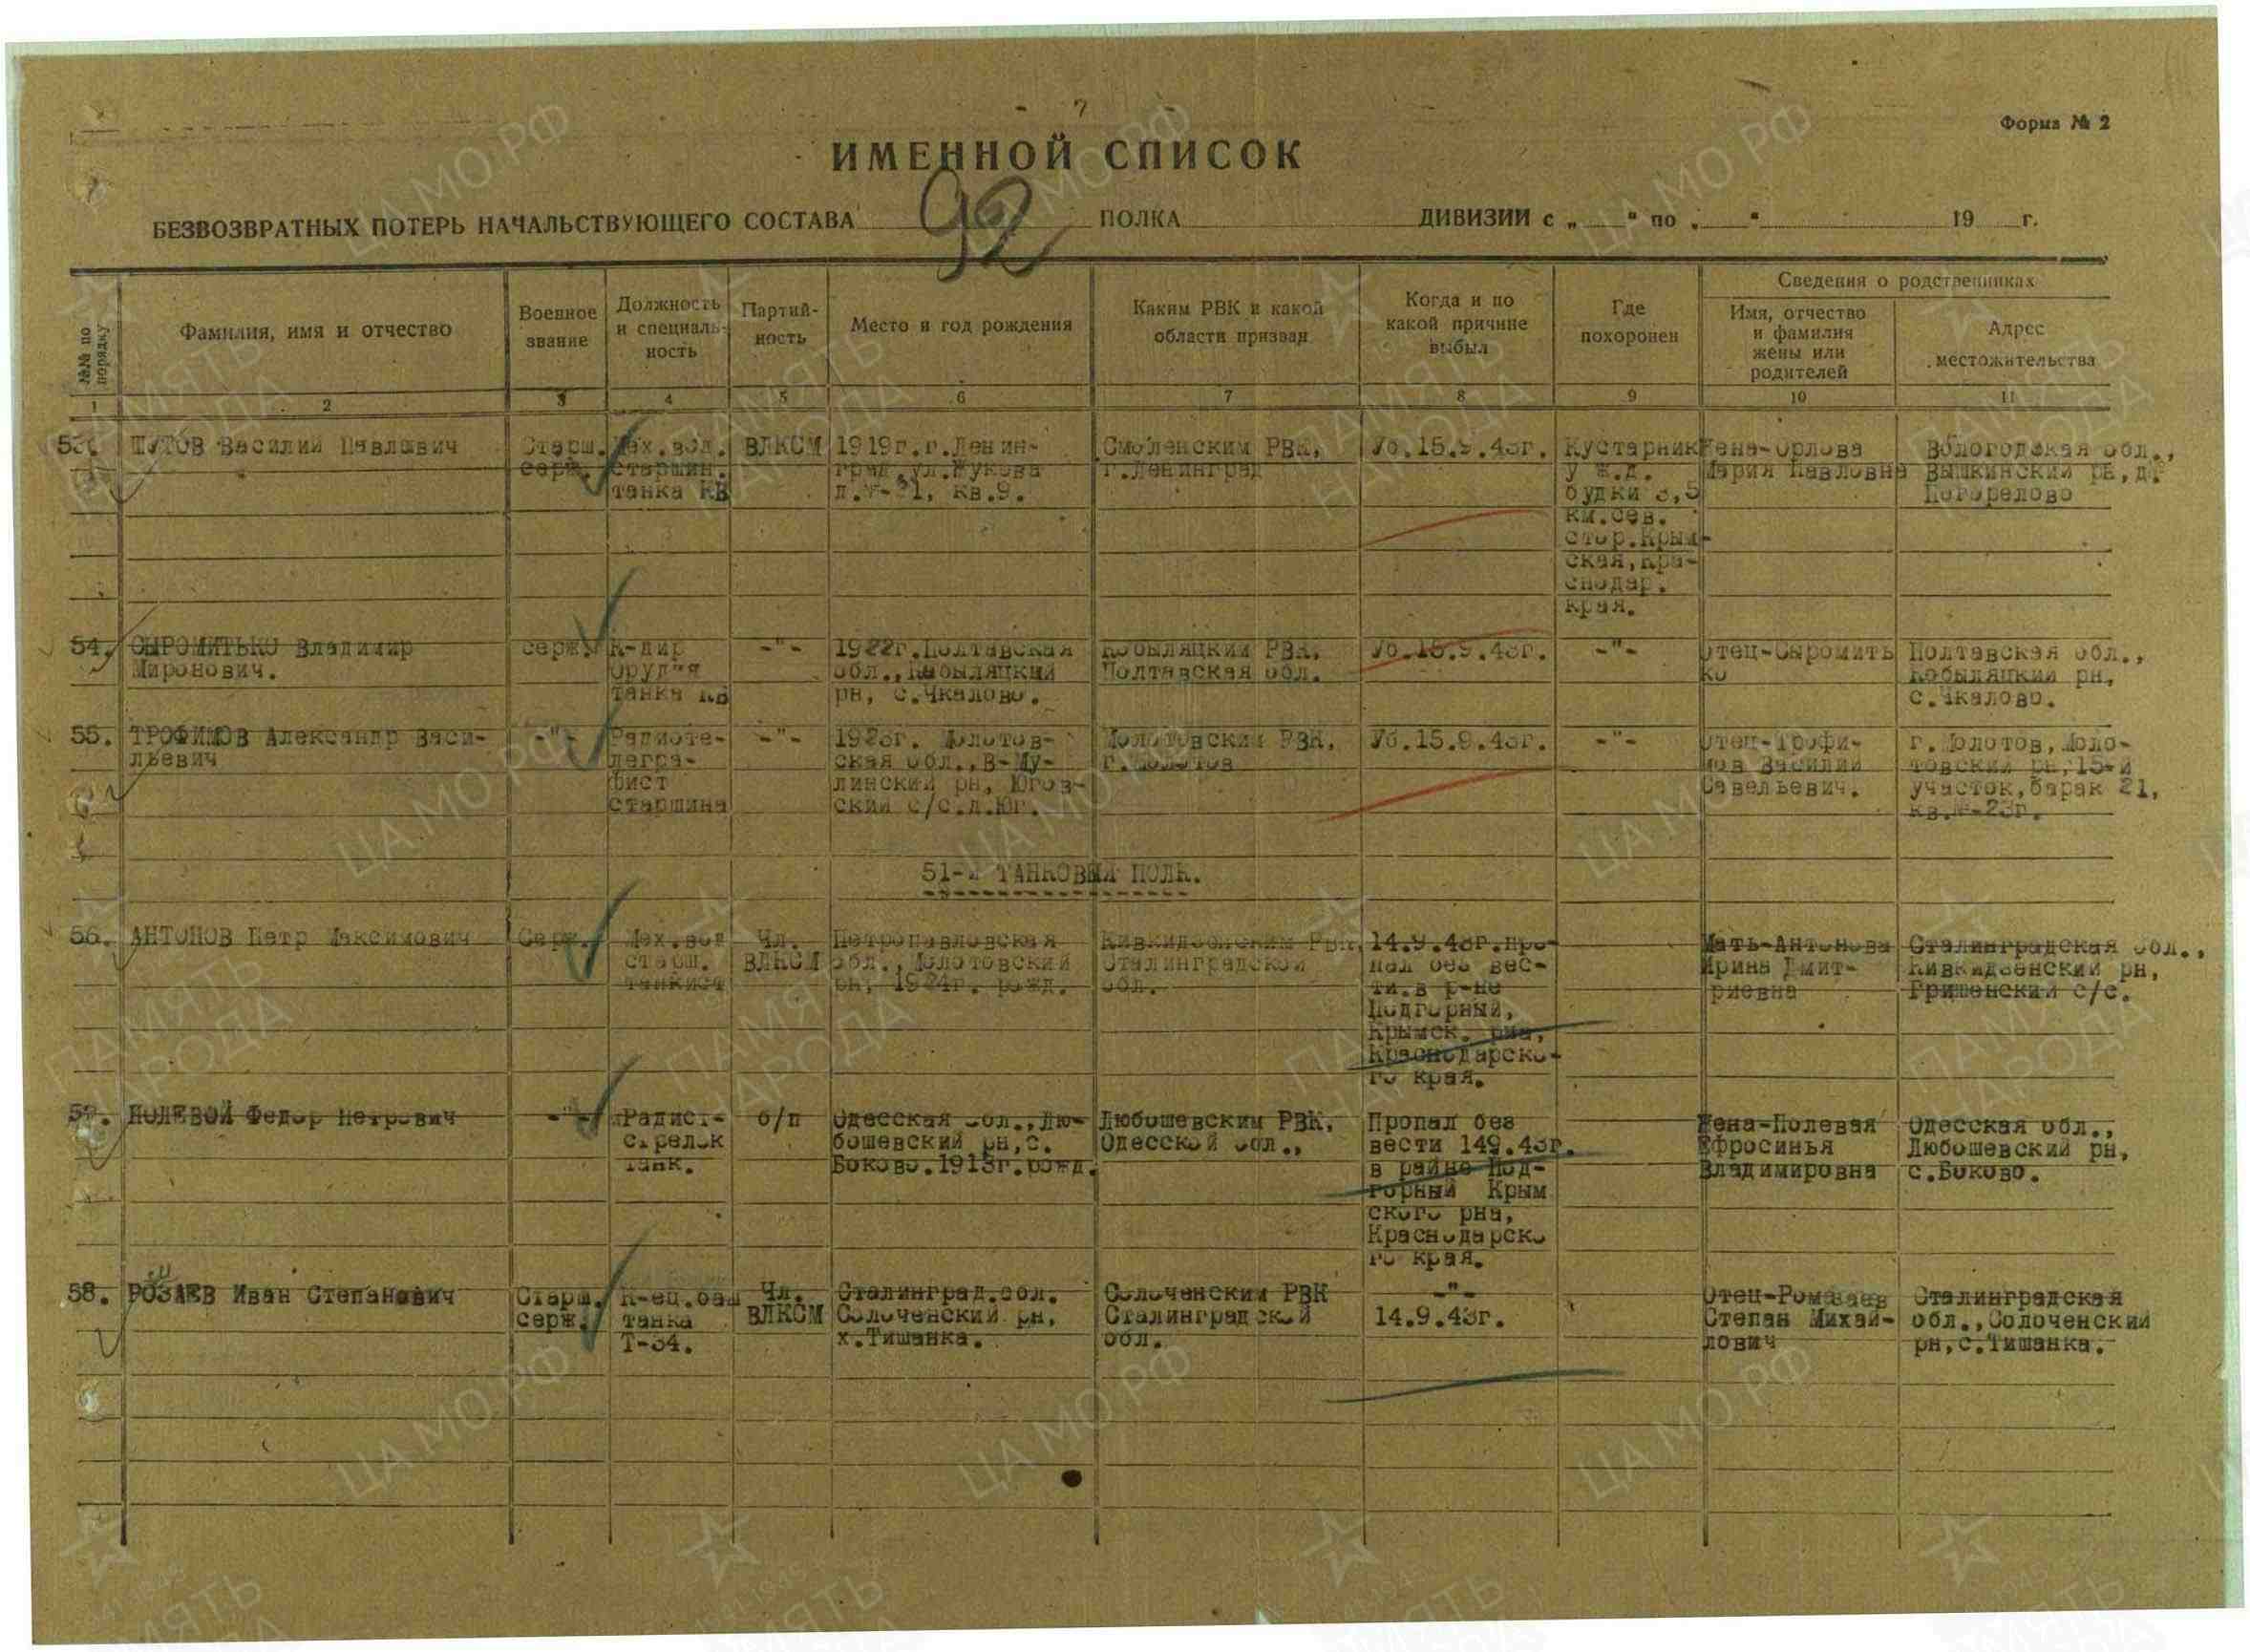 - 7 -
Форма № 2
ИМЕННОЙ СПИСОК
92
БЕЗВОЗВРАТНЫХ ПОТЕРЬ НАЧАЛЬСТВУЮЩЕГО СОСТАВА ПОЛКА ДИВИЗИИ с „ " по „ " 19 г.
№№ по порядку
Фамилия, имя и отчество
Военное звание
Должность и специаль- ность
Партий- ность
Место и год рождения
Каким РВК и какой области призван
Когда и по какой причине выбыл
Где похоронен
Сведения о родственниках
Имя, отчество и фамилия жены или родителей
Адрес местожительства
1 2 3 4 5 6 7 8 9 10 11
53. ШУТОВ Василий Павлович
Старш.
серж.
Мех.вод.
старшин.
танка КВ
ВЛКСМ
1919г.г.Ленин-
град,ул.Жукова
д.№-31, кв.9.
Смоленским РВК,
г.Ленинград
Уб.15.9.43г.
Кустарник
у ж.д.
будки 3,5
км.сев.
стор.Крым-
ская,Кра-
снодар.
края.
Жена-Орлова
Мария Павловна
Вологодская обл.,
рн,д.
Погорелово
54. СЫРОМИТЬКО Владимир
Миронович.
серж.
К-дир
орудия
танка КВ
-"-
1922г.Полтавская
обл.,Кобыляцкий
рн, с.Чкалово.
Кобыляцким РВК,
Полтавская обл.
Уб.15.9.43г.
-"-
Отец-Сыромить
ко
Полтавская обл.,
Кобыляцкий рн,
с.Чкалово.
55. ТРОФИМОВ Александр Васи-
льевич
-"-
Радиоте-
легра-
фист
старшина
-"-
1923г. Молотов-
ская обл.,В-Му-
линский рн, Югов-
ский с/с.д.Юг.
Молотовским РВК,
г.Молотов
Уб.15.9.43г.
-"-
Отец-Трофи-
мов Василий
Савельевич.
г.Молотов,Моло-
товский рн,15-й
участок,барак 21,
кв.№-23г.
51-й ТАНКОВЫЙ ПОЛК.
56. АНТОНОВ Петр Максимович
Серж.
Мех.вод
старш.
танкист
Чл.
ВЛКСМ
Петропавловская
обл.,Молотовский
рн, 1924г. рожд.
РВК,
Сталинградской
обл.
14.9.43г.про-
пал без вес-
ти.в р-не
Подгорный,
Крымск. рна,
Краснодарско-
го края.
Мать-Антонова
Ирина Дмит-
риевна
Сталинградская обл.,
рн,
Гришенский с/с.
57. ПОЛЕВОЙ Федор Петрович
-"-
Радист-
стрелок
танк.
б/п
Одесская обл.,Лю-
бошевский рн,с.
Боково.1913г.рожд.
Любошевским РВК,
Одесской обл.,
Пропал без
вести 149.43г.
в райне Под-
горный Крым
ского рна,
Краснодарско
го края.
Жена-Полевая
Ефросинья
Владимировна
Одесская обл.,
Любошевский рн,
с.Боково.
58. РОЗАЕВ Иван Степанович
Старш.
серж.
танка
Т-34.
Чл.
ВЛКСМ
Сталинград.обл.
Солоченский рн,
х.Тишанка.
Солоченским РВК
Сталинградской
обл.
-"-
14.9.43г.
Степан Михай-
лович
Сталинградская
обл.,Солоченский
рн,с.Тишанка.
ЦА МО РФ
ПАМЯТЬ
НАРОДА